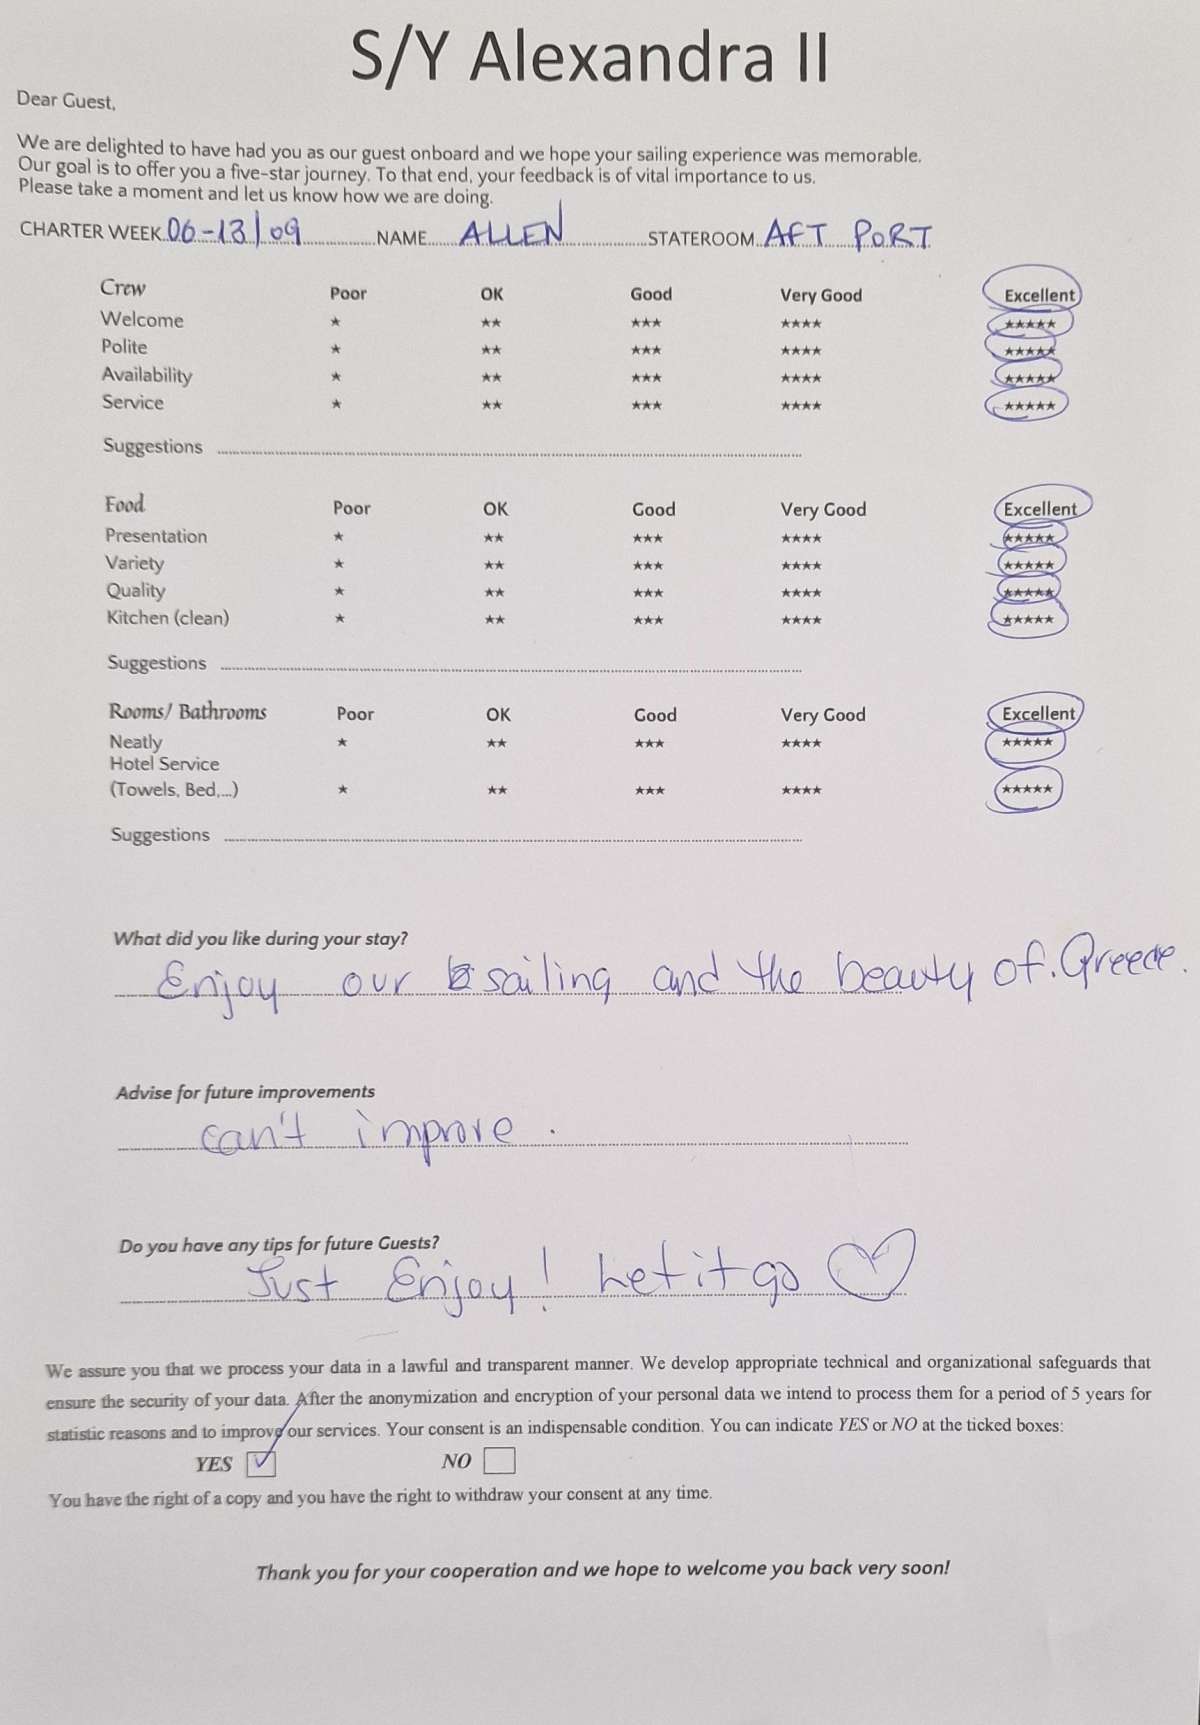 S/Y Alexandra II
Dear Guest,
We are delighted to have had you as our guest onboard and we hope your sailing experience was memorable.
Our goal is to offer you a five-star journey. To that end, your feedback is of vital importance to us.
Please take a moment and let us know how we are doing.
CHARTER WEEK 06-13/09 NAME ALLEN STATEROOM AFT PORT
Crew Poor OK Good Very Good Excellent
Welcome ★ ★★ ★★★ ★★★★ ★★★★★
Polite ★ ★★ ★★★ ★★★★ ★★★★★
Availability ★ ★★ ★★★ ★★★★ ★★★★★
Service ★ ★★ ★★★ ★★★★ ★★★★★
Suggestions
Food Poor OK Good Very Good Excellent
Presentation ★ ★★ ★★★ ★★★★ ★★★★★
Variety ★ ★★ ★★★ ★★★★ ★★★★★
Quality ★ ★★ ★★★ ★★★★ ★★★★★
Kitchen (clean) ★ ★★ ★★★ ★★★★ ★★★★★
Suggestions
Rooms/ Bathrooms Poor OK Good Very Good Excellent
Neatly ★ ★★ ★★★ ★★★★ ★★★★★
Hotel Service
(Towels, Bed,...) ★ ★★ ★★★ ★★★★ ★★★★★
Suggestions
What did you like during your stay?
Enjoy our sailing and the beauty of. Greece.
Advise for future improvements
can't improve.
Do you have any tips for future Guests?
Just Enjoy! Let it go ♡
We assure you that we process your data in a lawful and transparent manner. We develop appropriate technical and organizational safeguards that
ensure the security of your data. After the anonymization and encryption of your personal data we intend to process them for a period of 5 years for
statistic reasons and to improve our services. Your consent is an indispensable condition. You can indicate YES or NO at the ticked boxes:
YES ☑ NO ☐
You have the right of a copy and you have the right to withdraw your consent at any time.
Thank you for your cooperation and we hope to welcome you back very soon!